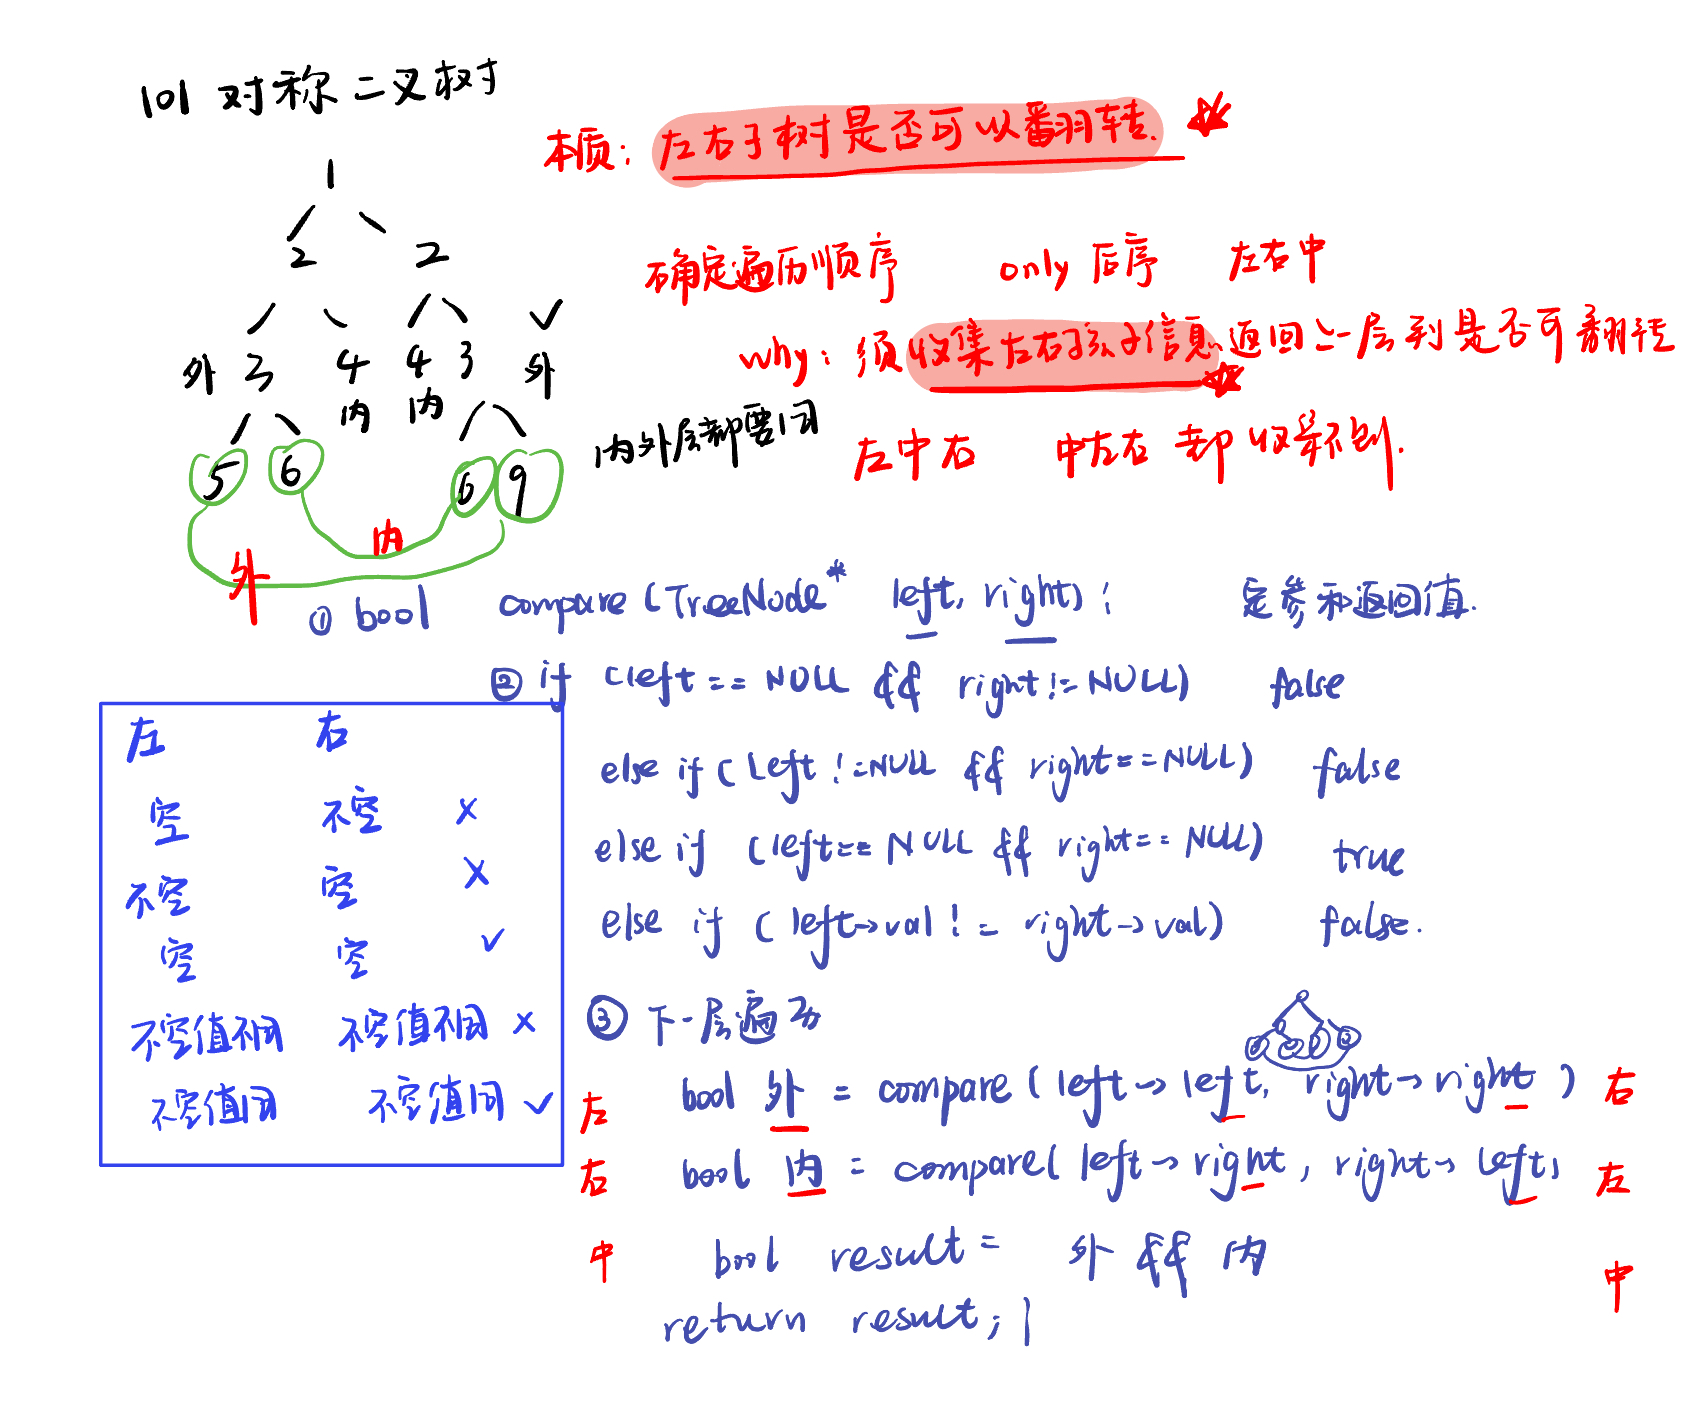 101 对称二叉树
本质：左右子树是否可以翻转.
1
2 2
确定遍历顺序 only 后序 左右中
外 3 4 4 3 外
内 内
why: 须收集左右孩子信息返回上一层判是否可翻转
内外层都要同
左中右 中左右 都收集不到.
5 6 6 9
内
外
① bool compare (TreeNode* left, right); 定参和返回值.
② if (left == NULL && right != NULL) false
else if (left != NULL && right == NULL) false
else if (left == NULL && right == NULL) true
else if (left->val != right->val) false.
左 右
空 不空 ×
不空 空 ×
空 空 ✓
不空值不同 不空值不同 ×
不空值同 不空值同 ✓
③ 下一层遍历
左 bool 外 = compare (left->left, right->right) 右
右 bool 内 = compare( left->right, right->left) 左
中 bool result = 外 && 内 中
return result;